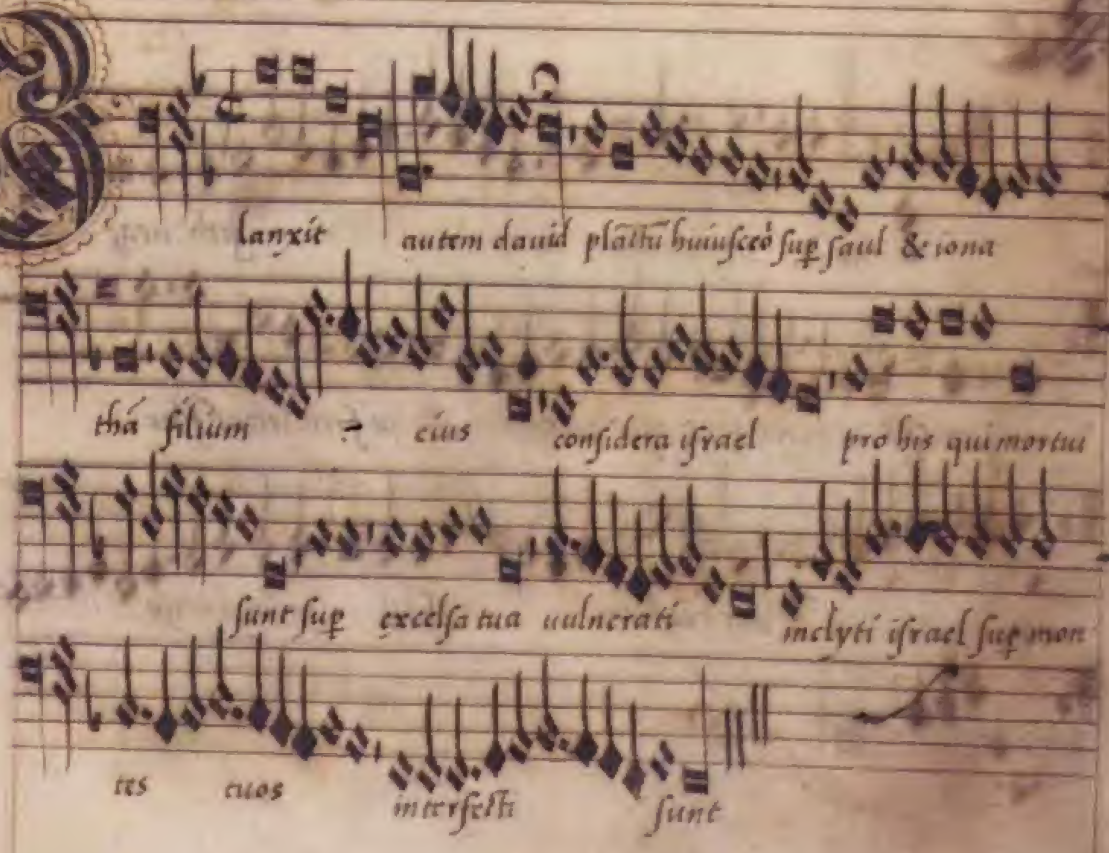 Planxit autem dauid plāctū huiusceō sup̱ saul & iona
thā filium eius considera israel pro his qui mortui
sunt sup̱ excelsa tua uulnerati inclyti israel sup̱ mon
tes tuos interfecti sunt